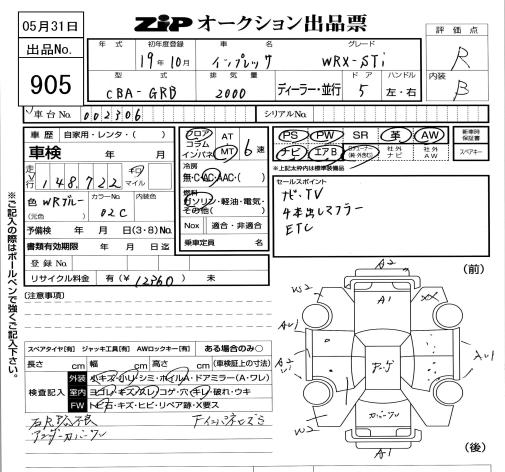 05月31日
出品No.
905
ZIP オークション出品票
評価点
R
内装
B
年式 初年度登録 車名 グレード
19年10月 インプレッサ WRX-STi
型式 排気量 ドア ハンドル
CBA-GRB 2000 ディーラー・並行 5 左・右
車台No. 002306 シリアルNo.
車歴 自家用・レンタ( )
車検
走行 148,722 キロ マイル
色 WRブルー カラーNo. 02C 内装色
(元色)
予備検 年 月 日(3・8)No.
書類有効期限 年 月 日迄
登録No.
リサイクル料金 有(¥12360) 未
フロア コラム インパネ AT MT 6速
冷房
無・C・AC・AAC・( )
燃料
ガソリン・軽油・電気・その他( )
Nox 適合・非適合
乗車定員 名
PS PW SR 革 AW
ナビ エアB 社外ナビ 社外AW
新車時保証書
スペアキー
※上記太枠内は標準装備品
セールスポイント
ナビ・TV
4本出しマフラー
ETC
※ご記入の際はボールペンで強くご記入下さい。
(注意事項)
スペアタイヤ[有] ジャッキ工具[有] AWロックキー[有] ある場合のみ○
長さ cm 幅 cm 高さ cm (車検証上の寸法)
検査記入
外装 小キズ・小U・シミ・ホイルA・ドアミラー(A・ワレ)
室内 ヨゴレ・キズ・スレ・コゲ・穴・キレ・破れ・ウキ
FW トビ石・キズ・ヒビ・リペア跡・X要ス
アンダーカバーワレ
(前)
A2
W2
A1
XX
AU1
A2
アンテナ
W2
カバーワレ
A1
(後)